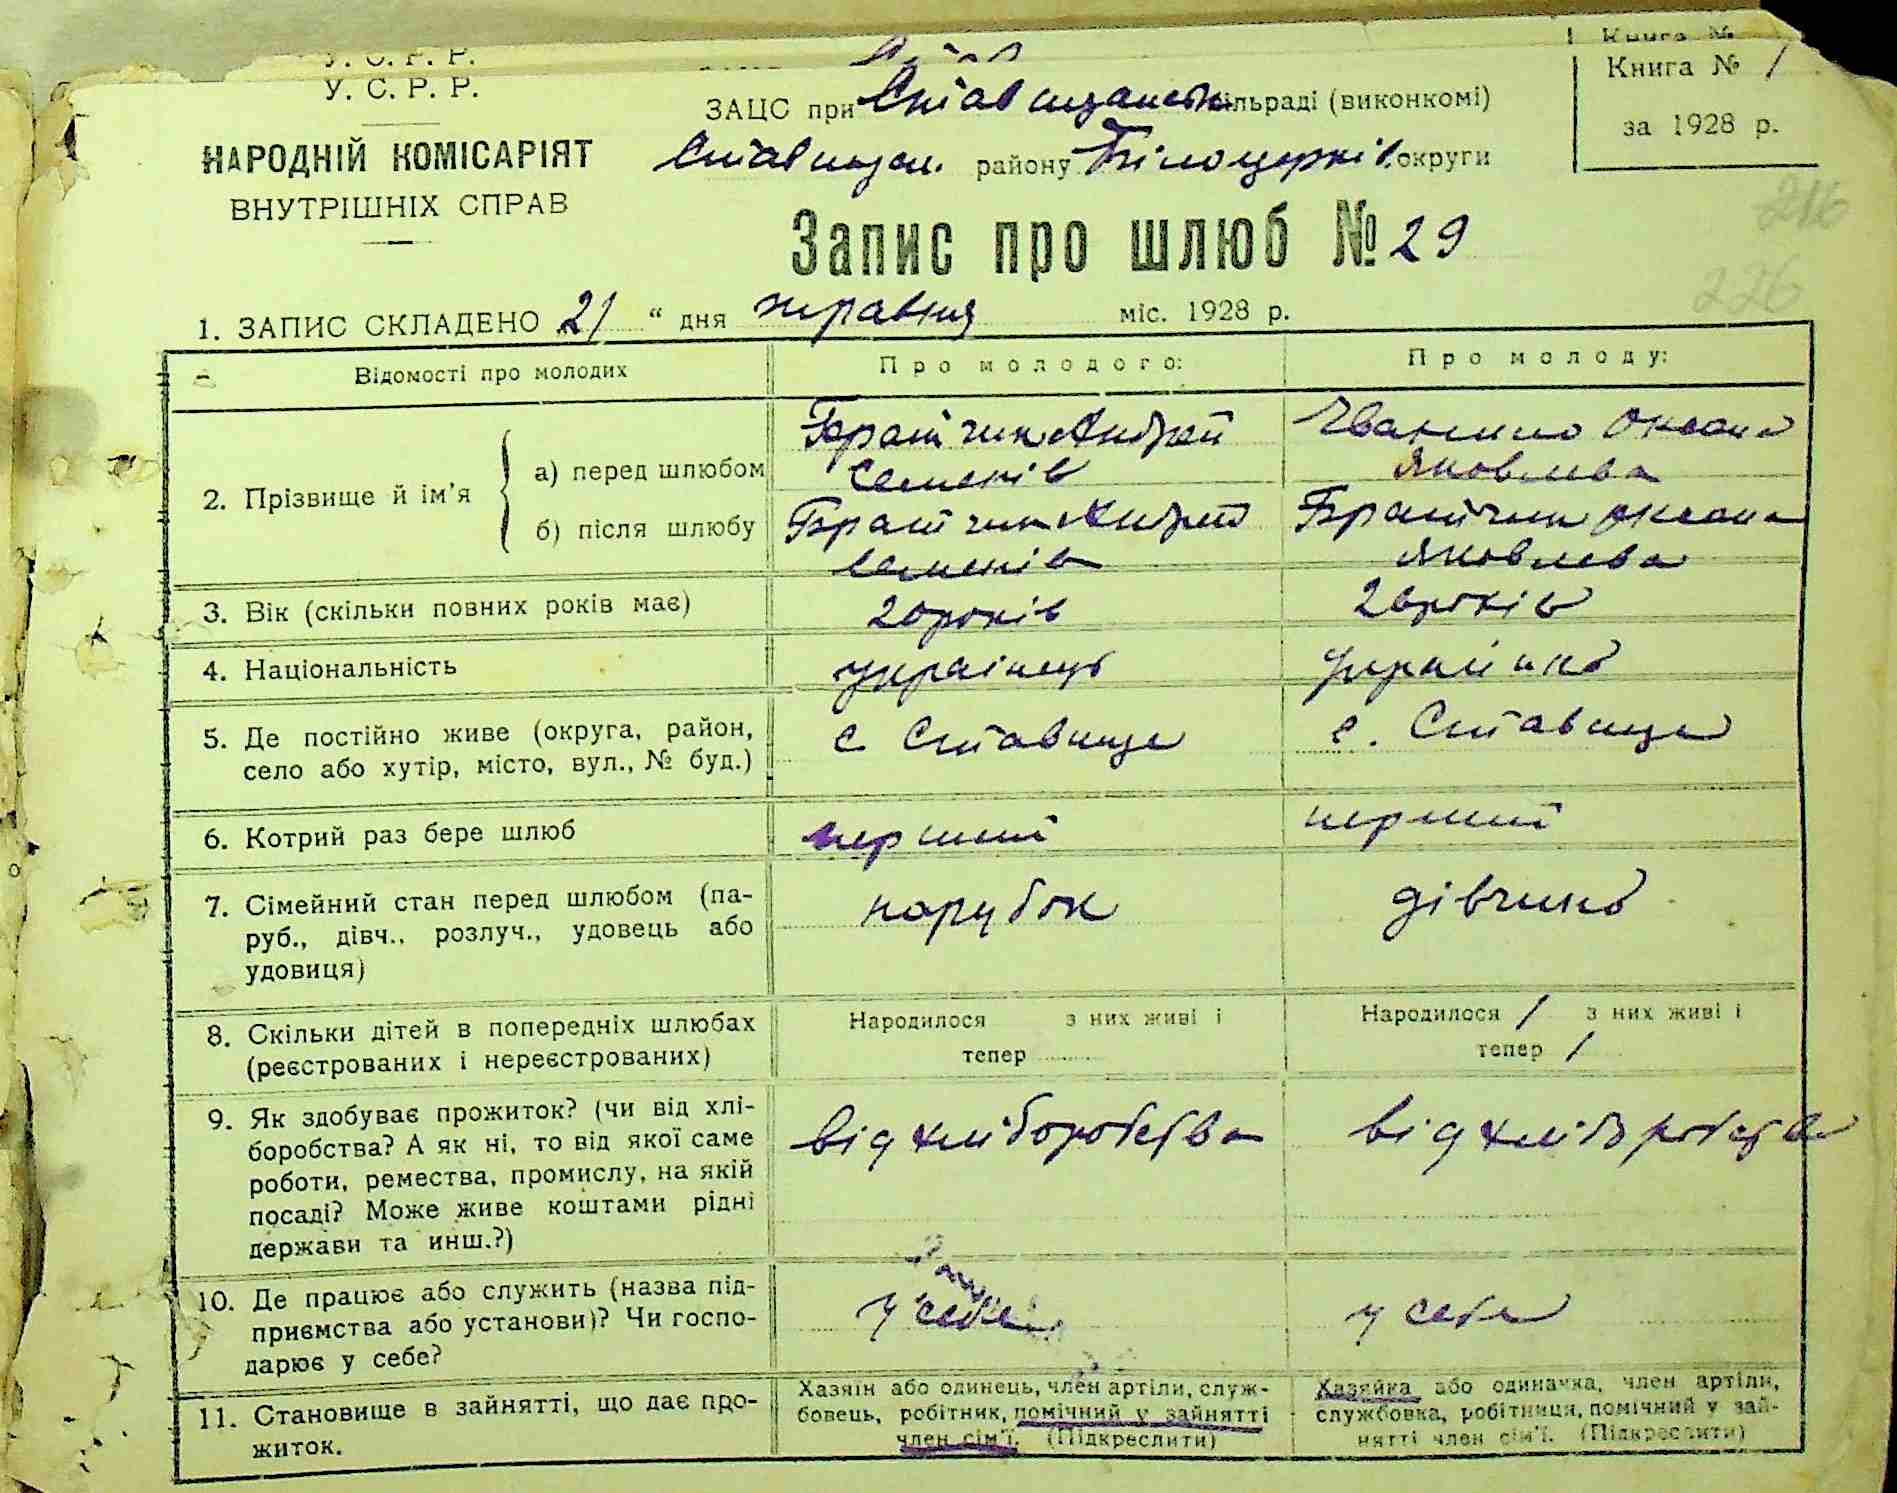 У. С. Р. Р.
У. С. Р. Р.
НАРОДНІЙ КОМІСАРІЯТ
ВНУТРІШНІХ СПРАВ
Книга №
Книга № 1
за 1928 р.
ЗАЦС при Ставищанськ. сільраді (виконкомі)
Ставищан. району Білоцерків. округи
216
226
Запис про шлюб № 29
1. ЗАПИС СКЛАДЕНО 21 “ дня травня міс. 1928 р.
Відомості про молодих
Про молодого:
Про молоду:
2. Прізвище й ім’я
а) перед шлюбом
Братчик Андрей
Семенів
Оксана
Яковлева
б) після шлюбу
Братчик Андрей
Семенів
Братчик Оксана
Яковлева
3. Вік (скільки повних років має)
20 років
років
4. Національність
українець
українка
5. Де постійно живе (округа, район,
село або хутір, місто, вул., № буд.)
с Ставище
с. Ставище
6. Котрий раз бере шлюб
перший
перший
7. Сімейний стан перед шлюбом (па-
руб., дівч., розлуч., удовець або
удовиця)
парубок
дівчина
8. Скільки дітей в попередніх шлюбах
(реєстрованих і нереєстрованих)
Народилося з них живі і
тепер
Народилося 1 з них живі і
тепер 1
9. Як здобуває прожиток? (чи від хлі-
боробства? А як ні, то від якої саме
роботи, ремества, промислу, на якій
посаді? Може живе коштами рідні
держави та инш.?)
від хліборобства
від хліборобства
10. Де працює або служить (назва під-
приємства або установи)? Чи госпо-
дарює у себе?
у себе
у себе
11. Становище в зайнятті, що дає про-
житок.
Хазяїн або одинець, член артіли, служ-
бовець, робітник, помічний у зайнятті
член сім’ї. (Підкреслити)
Хазяйка або одиначка, член артіли,
службовка, робітниця, помічний у зай-
нятті член сім’ї. (Підкреслити)